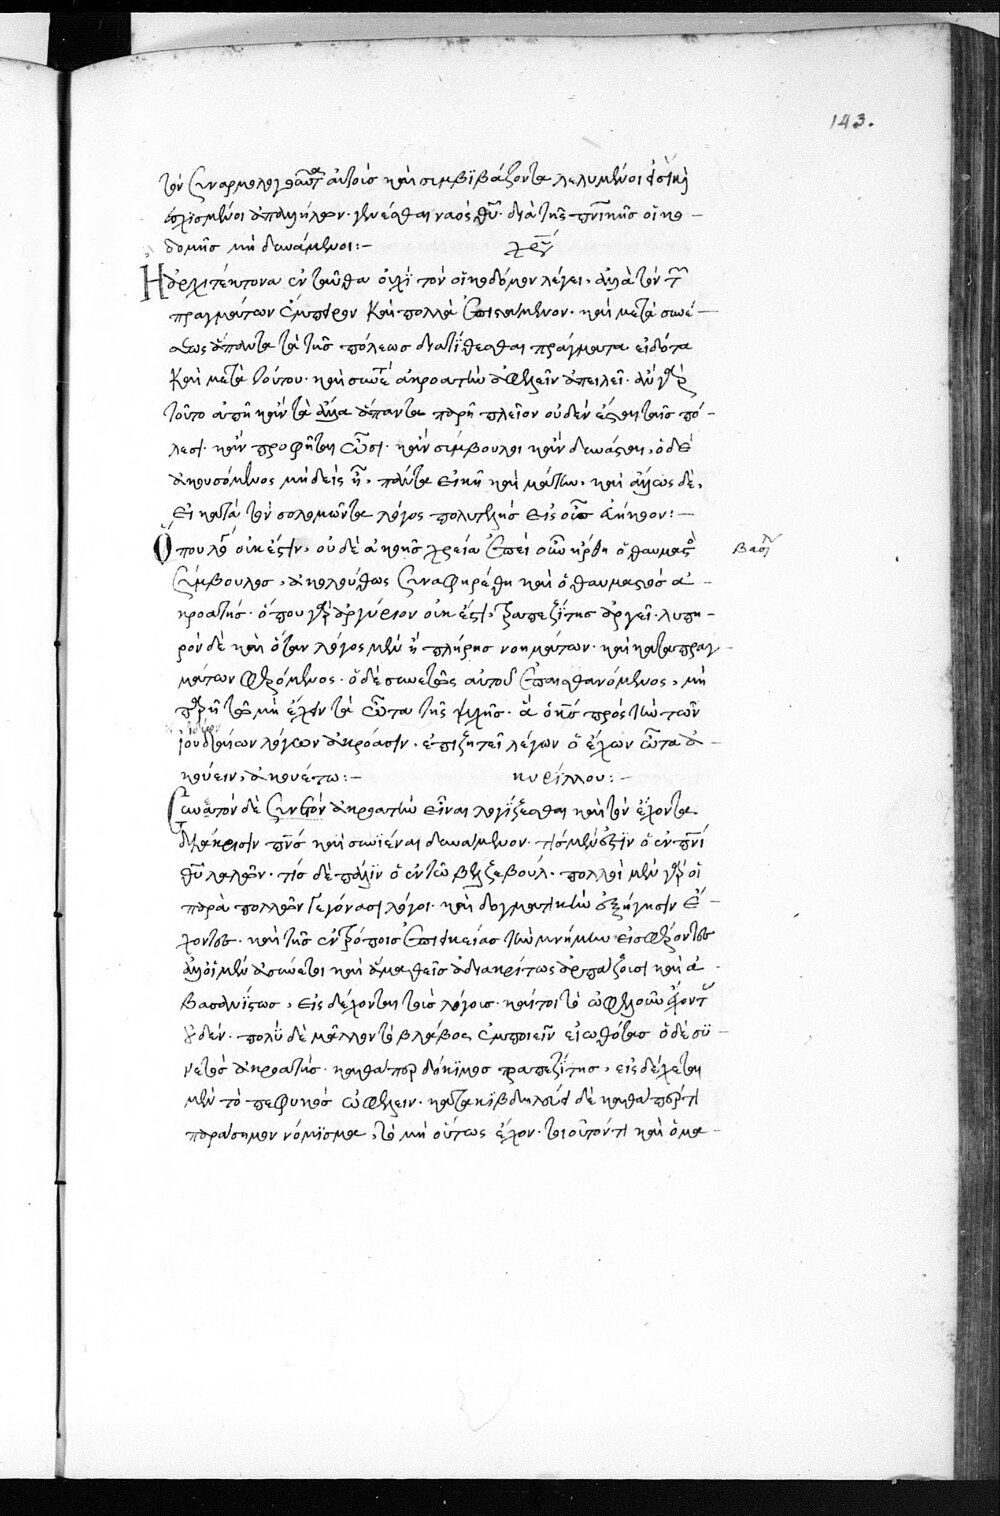 143.
τὸν συναρμολογοῦντα αὐτοὺς καὶ συμβιβάζοντα λελυμένοι εἰσὶ καὶ
ἐσχισμένοι ἀπ' ἀλλήλων· γενέσθαι ναὸς θ̅υ̅· διὰ τῆς πν̅ικῆς οἰκο-
δομῆς μὴ δυνάμενοι:-
Ἢ ἀρχιτέκτονα ἐνταῦθα οὐχὶ τὸν οἰκοδόμον λέγει, ἀλλὰ τὸν τῶν
πραγμάτων ἔμπειρον καὶ πολλὰ ἐπιστάμενον· καὶ μετὰ συνέ-
σεως ἅπαντα τὰ τῆς πόλεως διατίθεσθαι πράγματα εἰδότα
καὶ μετὰ τούτου· καὶ συνετὸν ἀκροατὴν ἀφελεῖν ἀπειλεῖ· ἂν γὰρ
τοῦτο ἀπῇ κἂν τὰ ἄλλα ἅπαντα παρῇ πλεῖον οὐδὲν ἔσται ταῖς πό-
λεσι· κἂν προφῆται ὦσι· κἂν σύμβουλοι κἂν δυνάσται, ὁ δὲ
ἀκουσόμενος μηδεὶς ᾖ, πάντα εἰκῇ καὶ μάτην, καὶ ἄλλως δὲ,
εἰ κατὰ τὸν σολομῶντα λόγος πολυτελὴς εἰς οὖς εὐήκοον:-
Ὅπου λόγος οὐκ ἔστιν, οὐδὲ ἀκοῆς χρεία ἐπεὶ οὖν ἤρθη ὁ θαυμαστὸς
βασιλ
σύμβουλος, ἀκολούθως συναφῃρέθη καὶ ὁ θαυμαστὸς ἀ-
κροατής· ὅπου γὰρ ἀργύριον οὐκ ἔστι, τραπεζίτης ἀργεῖ· λυπη-
ρὸν δὲ καὶ ὅταν λόγος μὲν ᾖ πλήρης νοημάτων· καὶ κατὰ πραγ-
μάτων φερόμενος· ὁ δὲ συνετῶς αὐτοῦ ἐπαισθανόμενος, μὴ
παρῇ τῷ μὴ ἔχειν τὰ ὦτα τῆς ψυχῆς· ἃ ὁ κ̅ς̅ πρὸς τὴν τῶν
ἰουδαίων λόγων ἀκρόασιν, ἐπιζητεῖ λέγων ὁ ἔχων ὦτα ἀ-
κούειν, ἀκουέτω:- κυρίλλου:-
Συνετὸν δὲ ἀκροατὴν εἶναι λογίζεσθαι καὶ τὸν ἔχοντα
διάκρισιν πν̅ς̅ καὶ συνιέναι δυνάμενον· τίς μέν ἐστιν ὁ ἐν πν̅ι̅
θ̅υ̅ λαλῶν· τίς δὲ πάλιν ὁ ἐν τῷ βεελζεβούλ· πολλοὶ μὲν γὰρ οἱ
παρὰ πολλῶν γεγόνασι λόγοι· καὶ δογματικὴν ἐξήγησιν ἔ-
χοντες· καὶ τῆς ἐν τρόποις ἐπιεικείας τὴν μνήμην εἰσφέροντες
ἀλλ' οἱ μὲν ἀσύνετοι καὶ ἀμαθεῖς ἀδιακρίτως ἁρπάζουσι καὶ ἀ-
βασανίστως, εἰσδέχονται τοὺς λόγους· καίτοι τὸ ὠφελοῦν ἔχοντας
οὐδέν· πολὺ δὲ μᾶλλον τὸ βλάβος ἐμποιεῖν εἰωθότας ὁ δὲ συ-
νετὸς ἀκροατής· καθάπερ δόκιμος τραπεζίτης, εἰσδέχεται
μὲν τὸ πεφυκὸς ὠφελεῖν· κατακιβδηλεύει δὲ καθάπερ τι
παράσημον νόμισμα, τὸ μὴ οὕτως ἔχον· τοιοῦτόν τι καὶ ὁ μα-